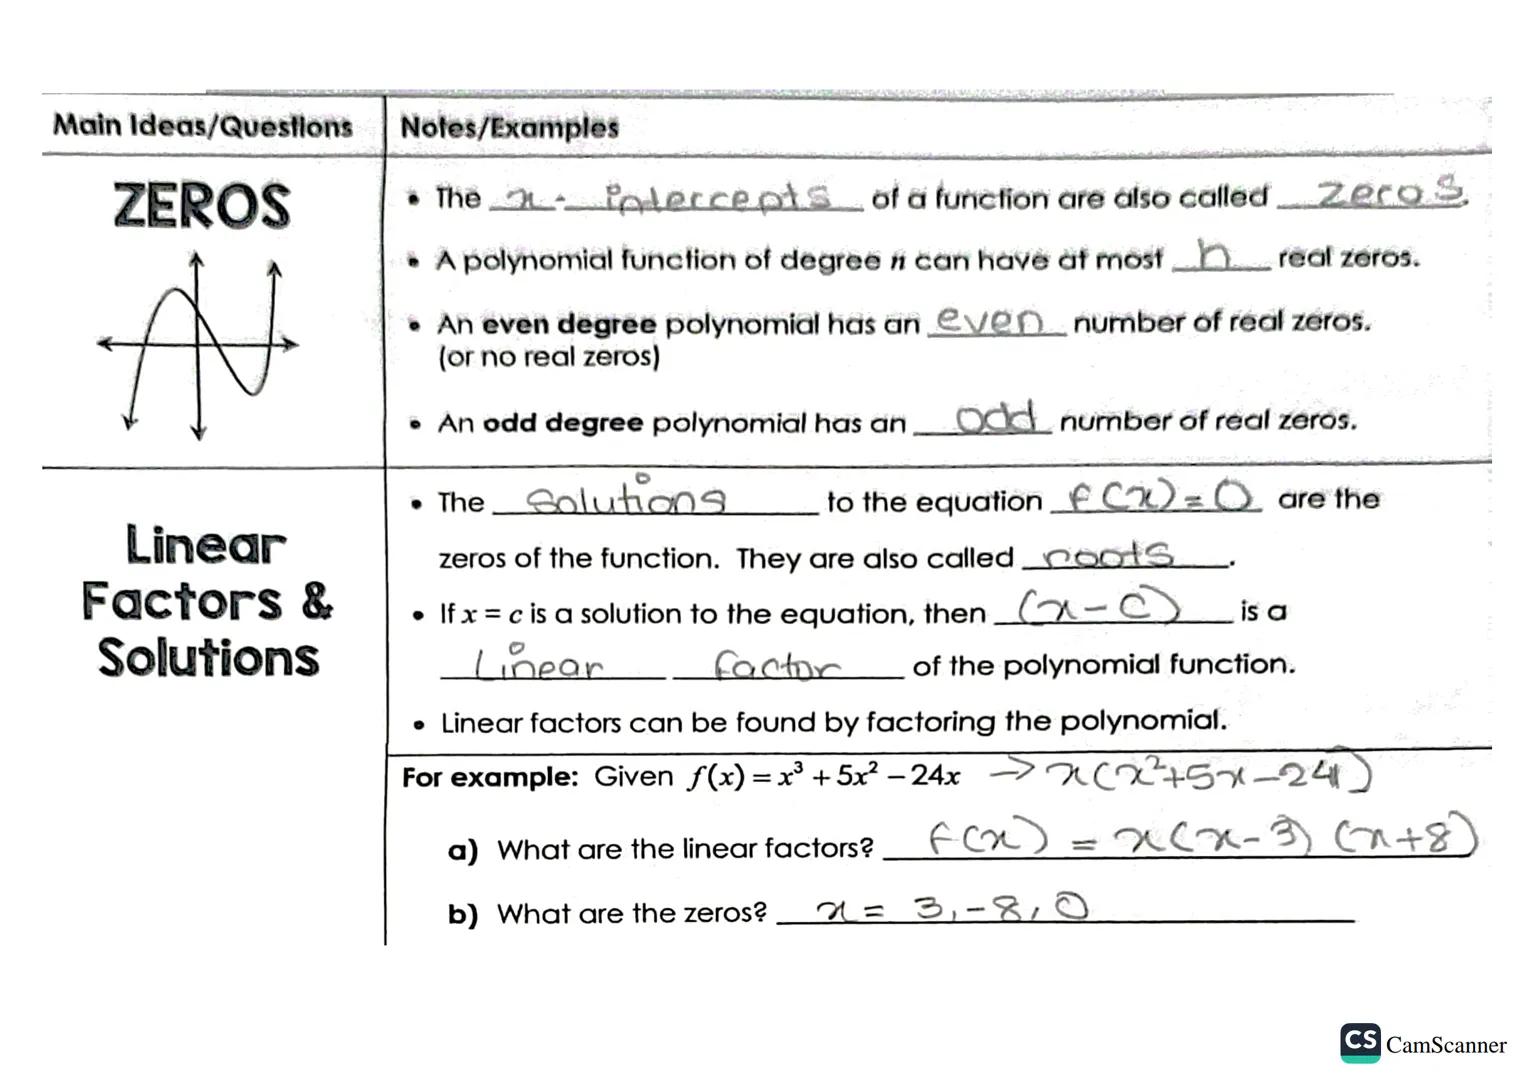 Main Ideas/Questions
Notes/Examples
ZEROS
• The x - intercepts of a function are also called zeros.
• A polynomial function of degree n can have at most n real zeros.
• An even degree polynomial has an even number of real zeros.
(or no real zeros)
• An odd degree polynomial has an odd number of real zeros.
Linear
Factors &
Solutions
• The Solutions to the equation f(x) = 0 are the
zeros of the function. They are also called roots.
• If x = c is a solution to the equation, then (x - c) is a
Linear factor of the polynomial function.
• Linear factors can be found by factoring the polynomial.
For example: Given f(x) = x³ + 5x² – 24x → x(x²+5x-24)
a) What are the linear factors? f(x) = x(x-3) (x+8)
b) What are the zeros? x = 3, -8, 0
CS CamScanner